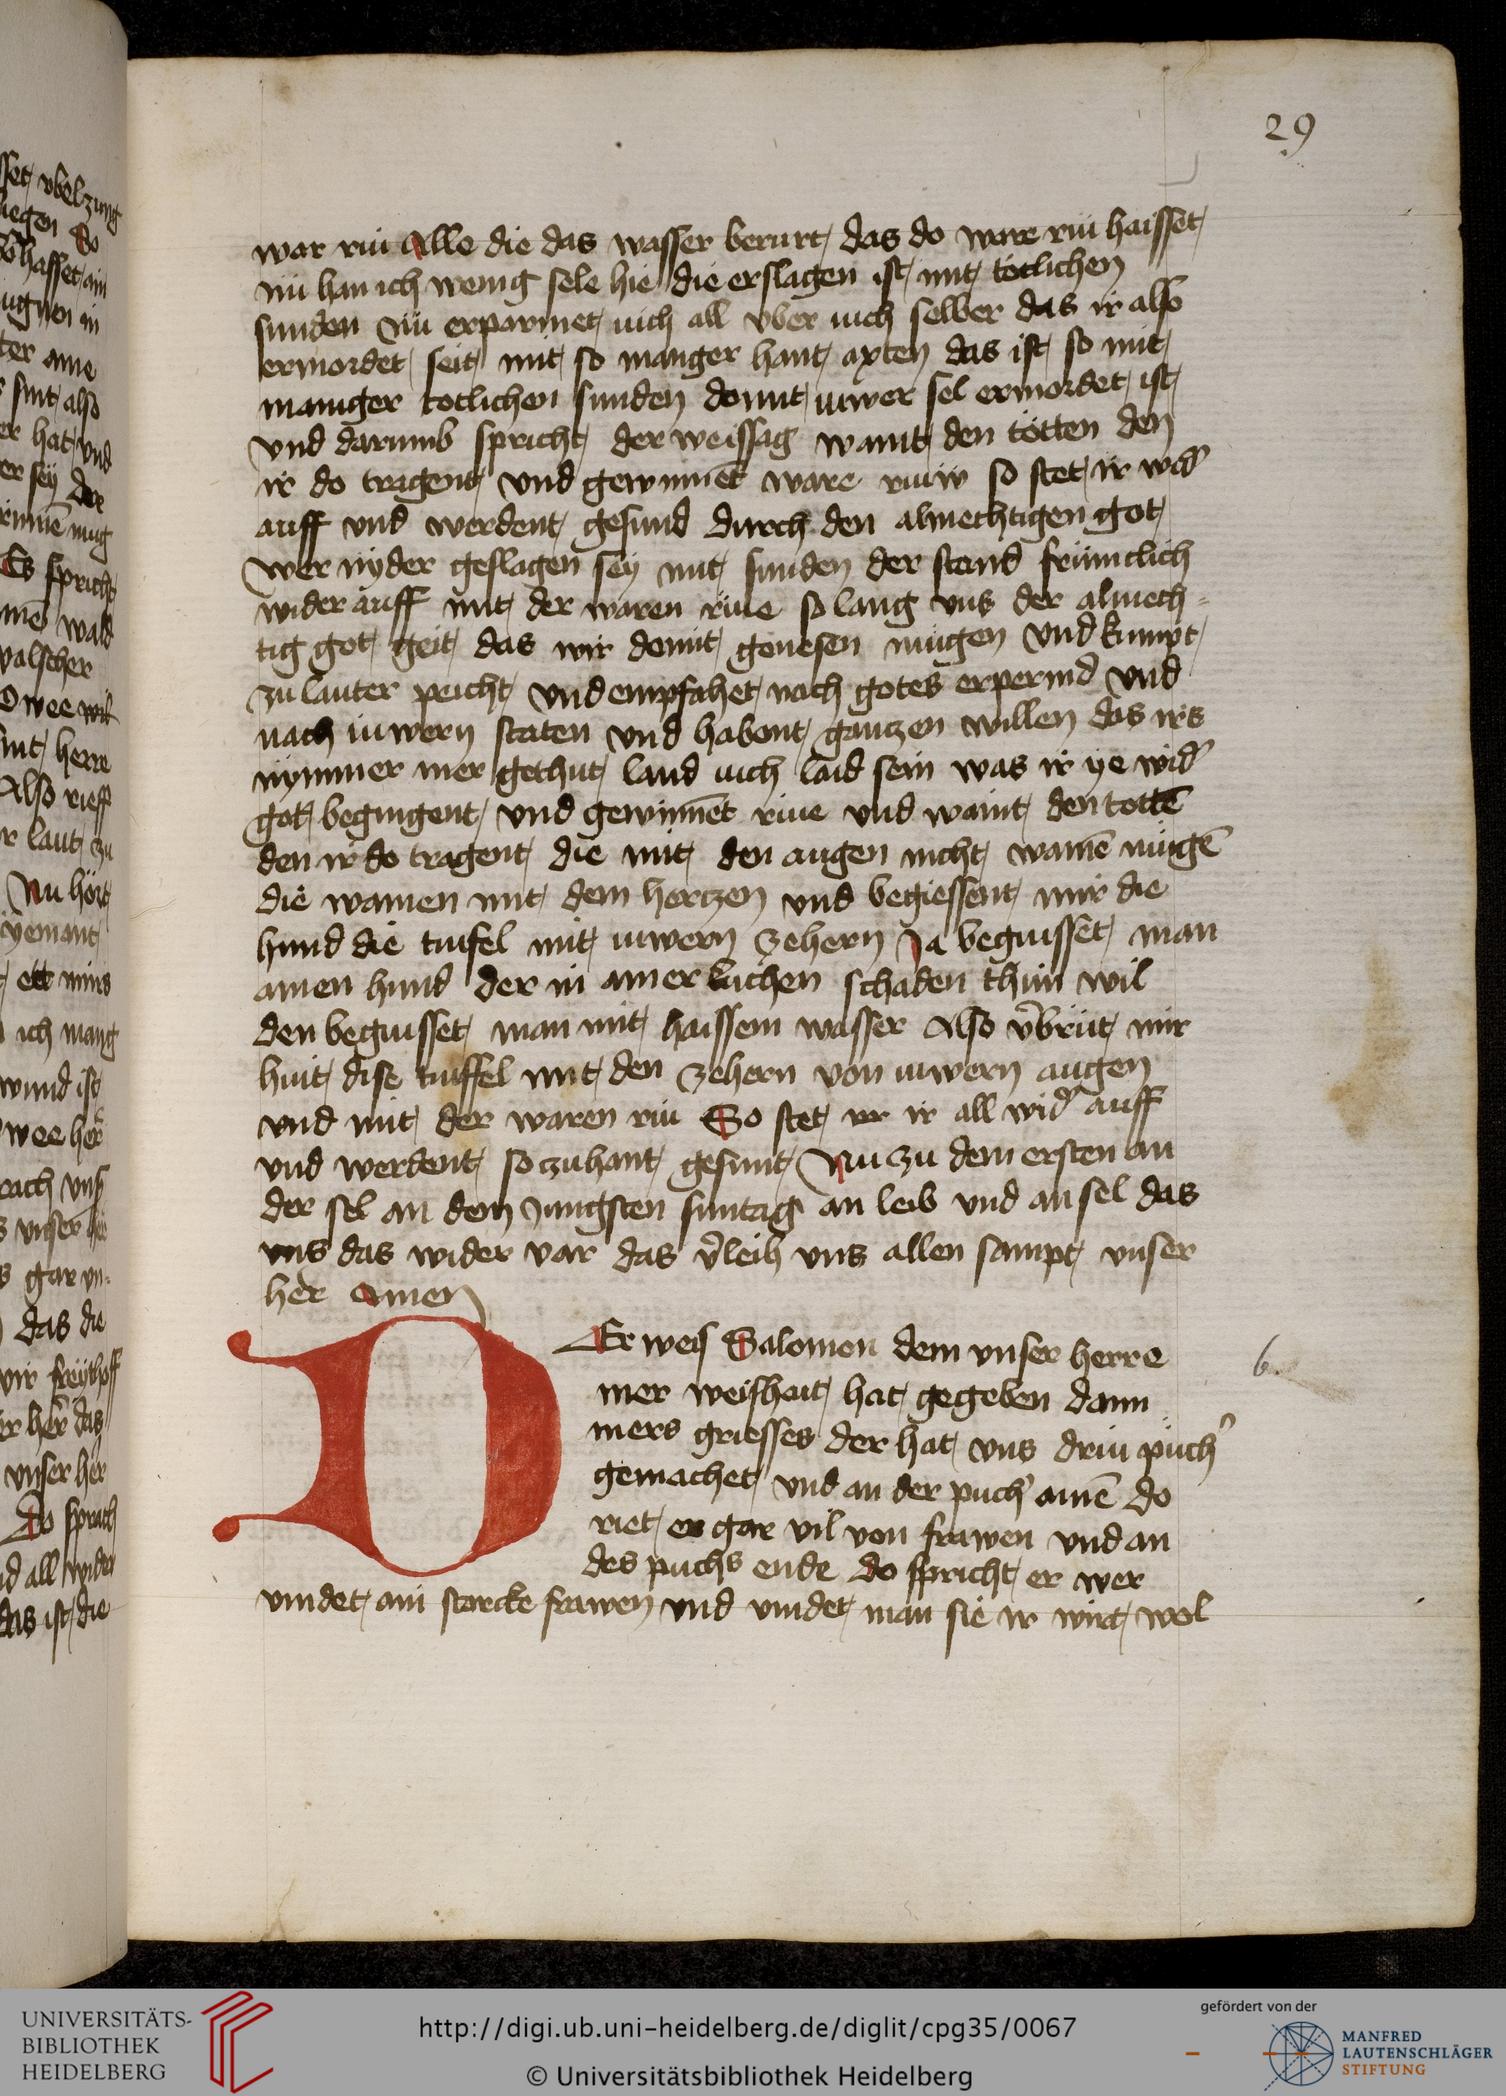 29
war riu Alle die das wasser berurt das do ware riu haisset
nu han ich wenig sele hie die erslagen ist mit totlichen
sunden Nu erparmet iuch all vber iuch selber das ir also
ermordet seit mit so manger hant axten das ist so mit
maniger totlichen sunden domit iuwer sel ermordet ist
vnd darumb spricht der weissag waint den totten den
ir do tragent vnd gewinnēt ware riuw so stet ir wid̾
auff vnd werdent gesund durch den almechtigen got
wer nyder geslagen sey mit sunden der stand frümclich
wider auff mit der waren riue so lang vns der almech-
tig got geit das wir domit genesen mügen vnd kumpt
zu lauter peicht vnd empfahet nach gotes erpermd vnd
nach iuwern staten vnd habent gantzen willen das irs
nymmer mer gethut land iuch laid sein was ir ye wid̾
got begingent vnd gewinnēt riue vnd waint den tottē
den ir do tragent die mit den augen nicht wainē mügē
die wainen mit dem hertzen vnd begiessent mir die
hund die tiufel mit iuwern zehern Ja begiusset man
ainen hund der in ainer kuchen schaden thun wil
den begiusset man mit haissem wasser Also v̾brüt mir
hiut dise tiuffel mit den zehern von iuwern augen
vnd mit der waren riu So stet ir all wid̾ auff
vnd werdent so zuhant gesunt Nu zu dem ersten an
der sel an dem Jungsten suntag an leib vnd an sel das
vns das wider var das v̾leih vns allen sampt vnser
her Amen
DEr weis Salomon dem vnser herre
mer weishait hat gegeben dann
mers griesses der hat vns driu püch̾
gemachet vnd an der puch̾ ainē do
riet er gar vil von frawen vnd an
des puchs ende do spricht er wer
vindet ain starcke frawen vnd vindet man sie ir wirt wol
6.
UNIVERSITÄTS-
BIBLIOTHEK
HEIDELBERG
http://digi.ub.uni-heidelberg.de/diglit/cpg35/0067
© Universitätsbibliothek Heidelberg
gefördert von der
MANFRED
LAUTENSCHLÄGER
STIFTUNG